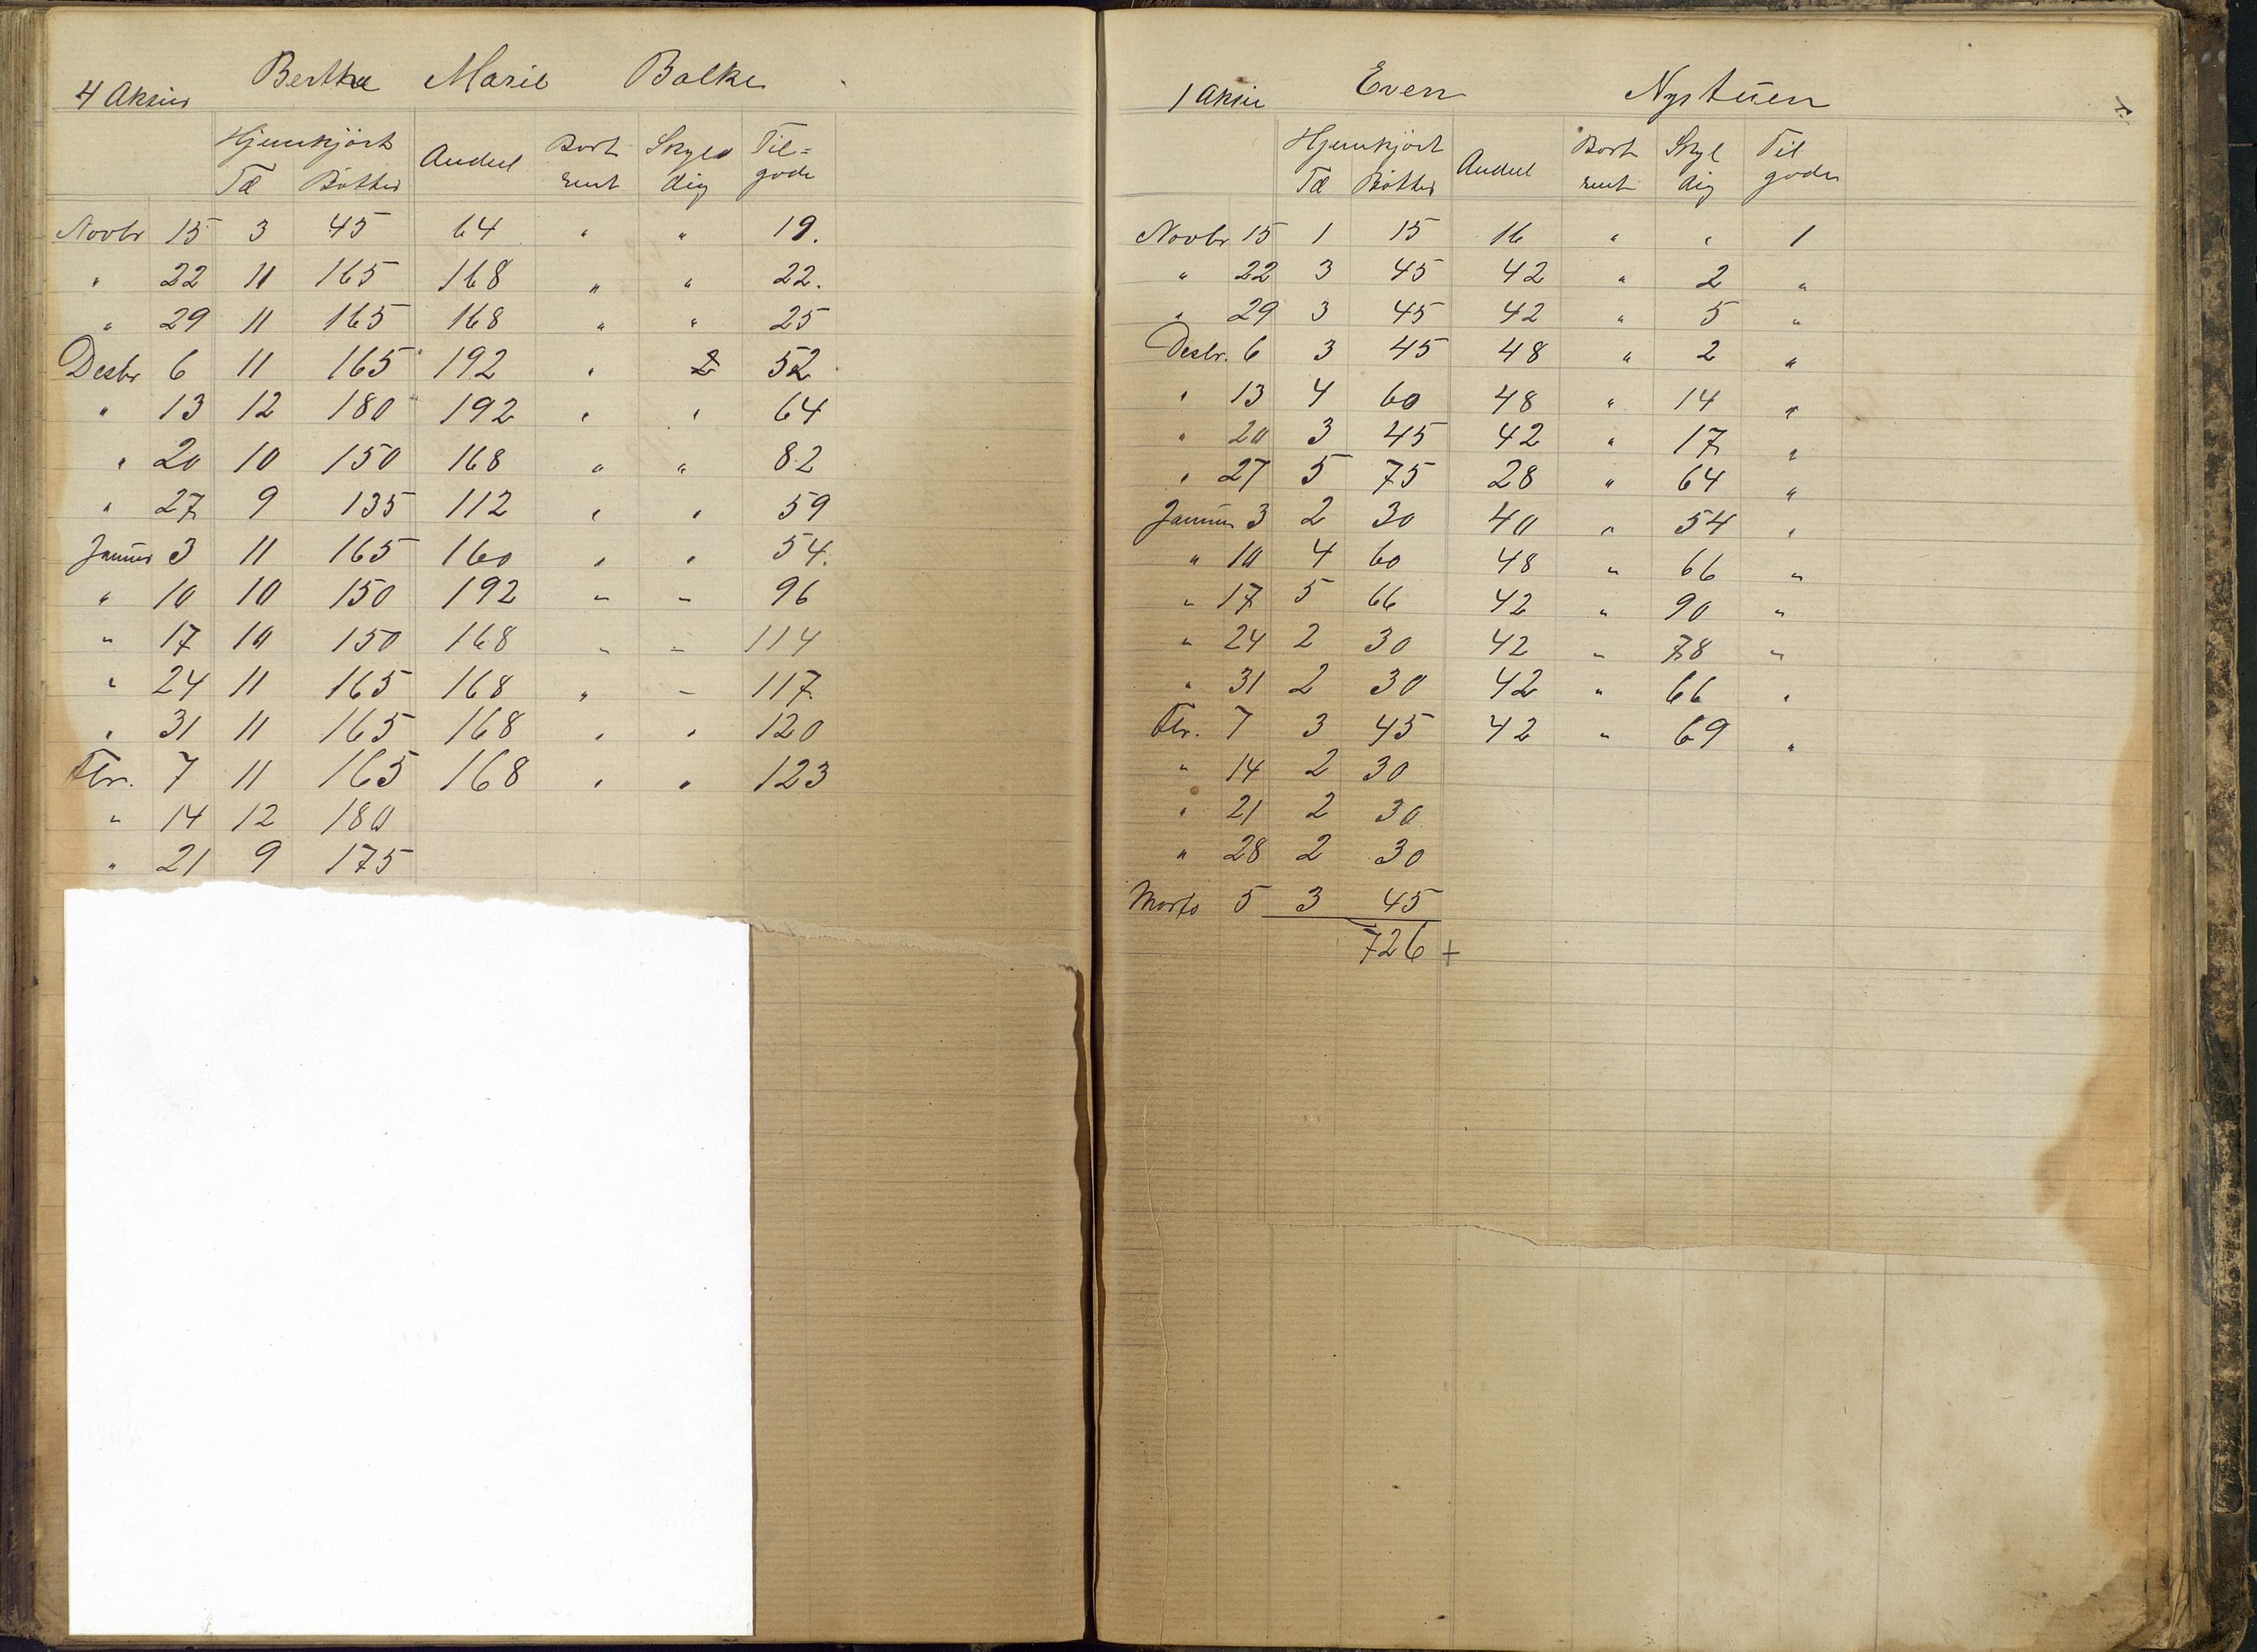 4 Aksier Berthe Marie Balke
Hjemkjört Andeel Bort Skyld Til=
Tæ Bötter rent dig gode
Novbr 15 3 45 64 " " 19.
" 22 11 165 168 " " 22.
" 29 11 165 168 " " 25
Desbr 6 11 165 192 " 2 52
" 13 12 180 192 " " 64
" 20 10 150 168 " " 82
" 27 9 135 112 " " 59
Januar 3 11 165 160 " " 54.
" 10 10 150 192 " " 96
" 17 10 150 168 " " 114
" 24 11 165 168 " " 117
" 31 11 165 168 " " 120
Fbr. 7 11 165 168 " " 123
" 14 12 180
" 21 9 175
1 Aksie Even Nystuen
Hjemkjört Andeel Bort Skyl Til
Tæ Bötter rent dig gode
Novbr 15 1 15 16 " " 1
" 22 3 45 42 " 2 "
" 29 3 45 42 " 5 "
Desbr. 6 3 45 48 " 2 "
" 13 4 60 48 " 14 "
" 20 3 45 42 " 17 "
" 27 5 75 28 " 64 "
Januar 3 2 30 40 " 54 "
" 10 4 60 48 " 66 "
" 17 5 66 42 " 90 "
" 24 2 30 42 " 78 "
" 31 2 30 42 " 66 "
Fbr. 7 3 45 42 " 69 "
" 14 2 30
" 21 2 30
" 28 2 30
Marts 5 3 45
726 +